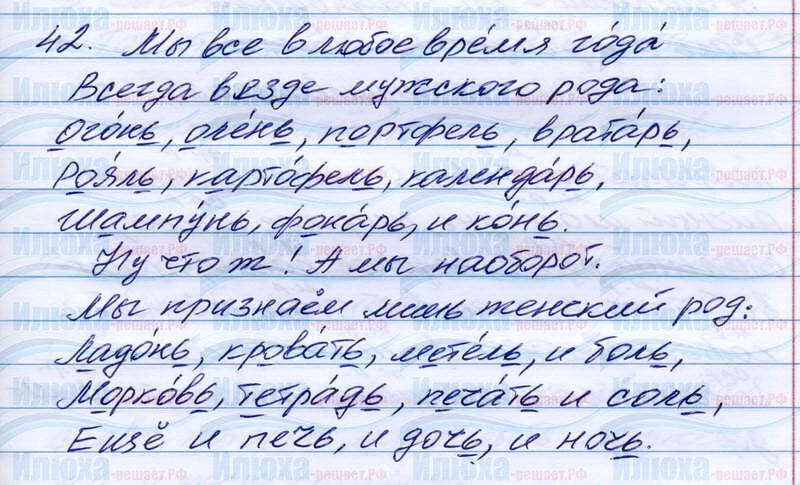 42. Мы все в любое вре́мя го́да́
Всегда везде мужского рода:
Ого́нь, оле́нь, портфель, врата́рь,
Роя́ль, карто́фель, календа́рь,
Шампу́нь, фона́рь, и ко́нь.
Ну что ж! А мы наоборот.
Мы признаём лишь женский род:
Ладо́нь, крова́ть, мете́ль, и боль,
Морко́вь, тетра́дь, печа́ть и соль,
Ещё и печь, и дочь, и ночь.
Илюха-решает.РФ